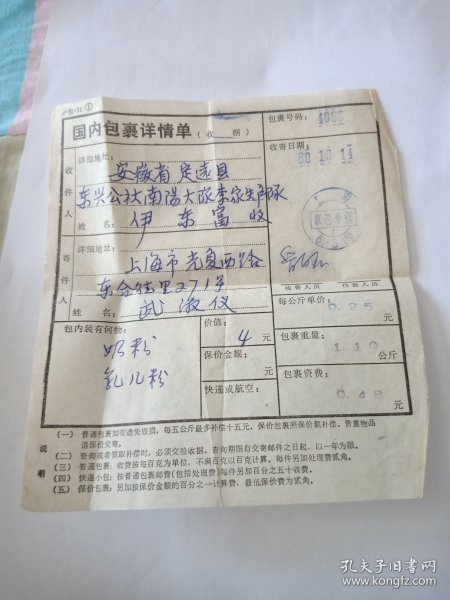 国内包裹详情单(收 据)
包裹号码:
收寄日期:
80 10 14
收件人
详细地址:
安徽省定远县
东兴公社南阳大队李家生产队
姓 名:
伊 东 富 收
寄件人
详细地址:
上海市光复西路
271号
姓 名:
武 淑 仪
收寄人员
检查人员
包内装有何物:
奶粉
乳儿粉
价值:
4 元
保价金额:
元
快递或航空:
每公斤单价:
0.25 元
包裹重量:
1.10 公斤
包裹资费:
0.48 元
说明
(一) 普通包裹如有遗失毁损,每五公斤最多补偿十五元,保价包裹照保价额补偿,贵重物品
请保价交寄。
(二) 查询或者领取补偿时,必须交验收据,查询期限自交寄邮件之日起,以一年为限。
(三) 普通包裹:收费按每百克为单位,不满百克以百克计算,每件另加处理费贰角。
(四) 快递小包:按普通包裹邮费(包括处理费)每件另加百分之五十收费。
(五) 保价包裹:另加按保价金额的百分之一计算费,最低保价费为贰角。
孔夫子旧书网
www.kongfz.com